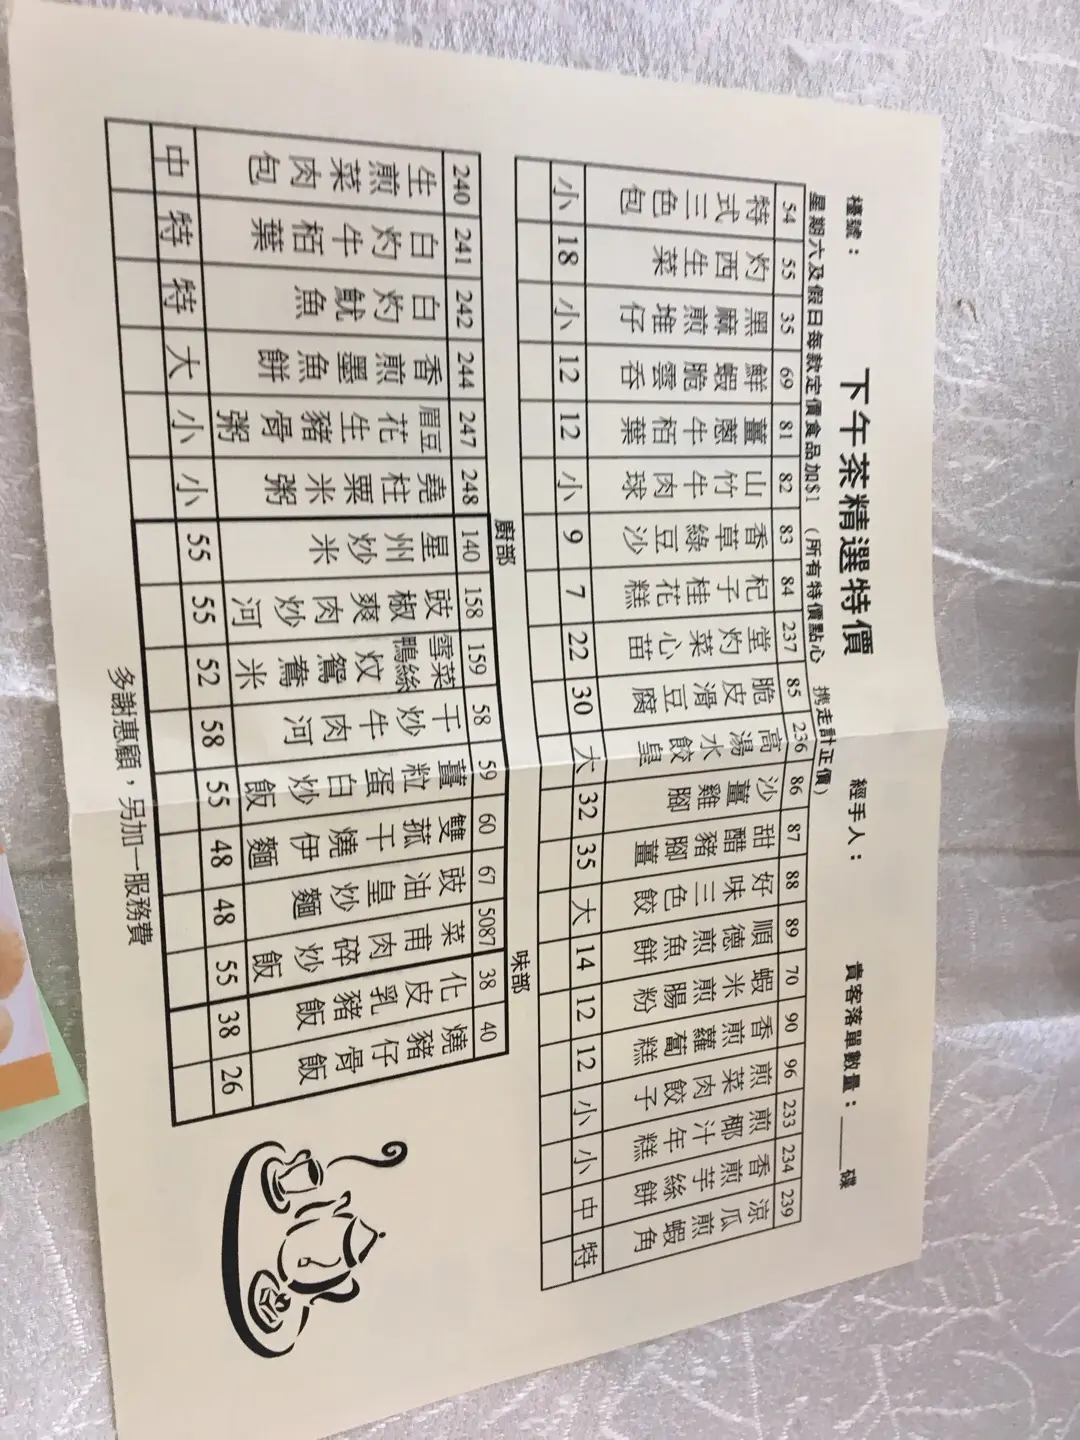 下午茶精選特價
檯號：
經手人：
貴客落單數量：____碟
星期六及假日每款定價食品加$1 (所有特價點心 携走計正價)
54 55 35 69 81 82 83 84 237 85 236 86 87 88 89 70 90 96 233 234 239
特式三色包
灼西生菜
黑麻煎堆仔
鮮蝦脆雲吞
薑蔥牛栢葉
山竹牛肉球
香草綠豆沙
杞子桂花糕
堂灼菜心苗
脆皮滑豆腐
高湯水餃皇
沙薑雞腳
甜醋豬腳薑
好味三色餃
順德煎魚餅
蝦米煎腸粉
香煎蘿蔔糕
煎菜肉餃子
煎椰汁年糕
香煎芋絲餅
涼瓜煎蝦角
小 18 小 12 12 小 9 7 22 30 大 32 35 大 14 12 12 小 小 中 特
廚部
味部
240 241 242 244 247 248 140 158 159 58 59 60 67 5087 38 40
生煎菜肉包
白灼牛栢葉
白灼魷魚
香煎墨魚餅
眉豆花生豬骨粥
堯柱粟米粥
星州炒米
豉椒爽肉炒河
雪菜鴨絲炆鴛鴦米
干炒牛肉河
薑粒蛋白炒飯
雙菰干燒伊麵
豉油皇炒麵
菜甫肉碎炒飯
化皮乳豬飯
燒豬仔骨飯
中 特 特 大 小 小 55 55 52 58 55 48 48 55 38 26
多謝惠顧，另加一服務費